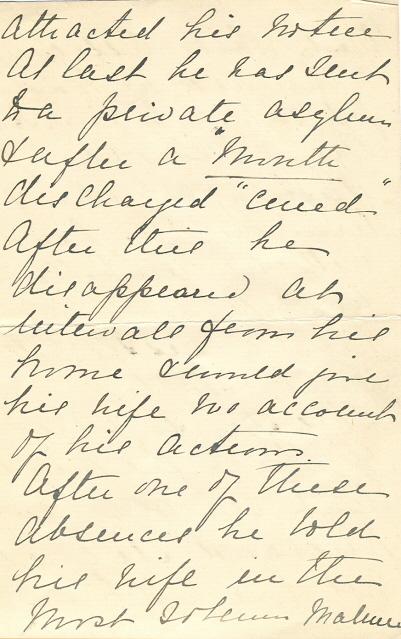 attracted his notice
At last he was sent
to a private asylum
& after a "Month
discharged "cured"
After this he
disappeared at
intervals from his
home & would give
his wife no account
of his actions.
After one of these
absences he told
his wife in the
Most solemn Manner